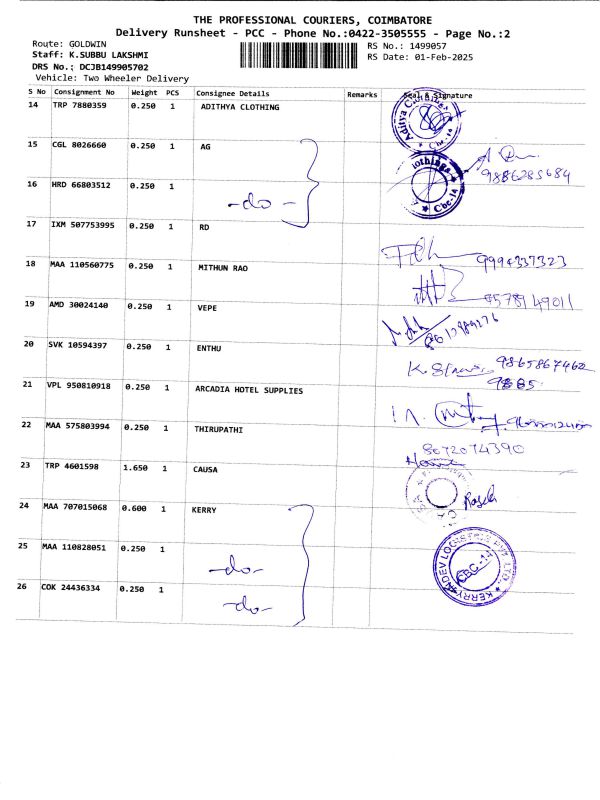 THE PROFESSIONAL COURIERS, COIMBATORE
Delivery Runsheet - PCC - Phone No.:0422-3505555 - Page No.:2
Route: GOLDWIN
RS No.: 1499057
Staff: K.SUBBU LAKSHMI
RS Date: 01-Feb-2025
DRS No.: DCJB149905702
Vehicle: Two Wheeler Delivery
S No Consignment No Weight PCS Consignee Details Remarks Seal & Signature
14 TRP 7880359 0.250 1 ADITHYA CLOTHING
15 CGL 8026660 0.250 1 AG
9886285684
16 HRD 66803512 0.250 1 -do-
17 IXM 507753995 0.250 1 RD
9994337323
18 MAA 110560775 0.250 1 MITHUN RAO
9578149011
19 AMD 30024140 0.250 1 VEPE
20 SVK 10594397 0.250 1 ENTHU
9865867462
9885
21 VPL 950810918 0.250 1 ARCADIA HOTEL SUPPLIES
22 MAA 575803994 0.250 1 THIRUPATHI
8072074390
23 TRP 4601598 1.650 1 CAUSA
24 MAA 707015068 0.600 1 KERRY
25 MAA 110828051 0.250 1 -do-
KERRY INDEV LOGISTICS PVT. LTD.
CBC-14
26 COK 24436334 0.250 1 -do-